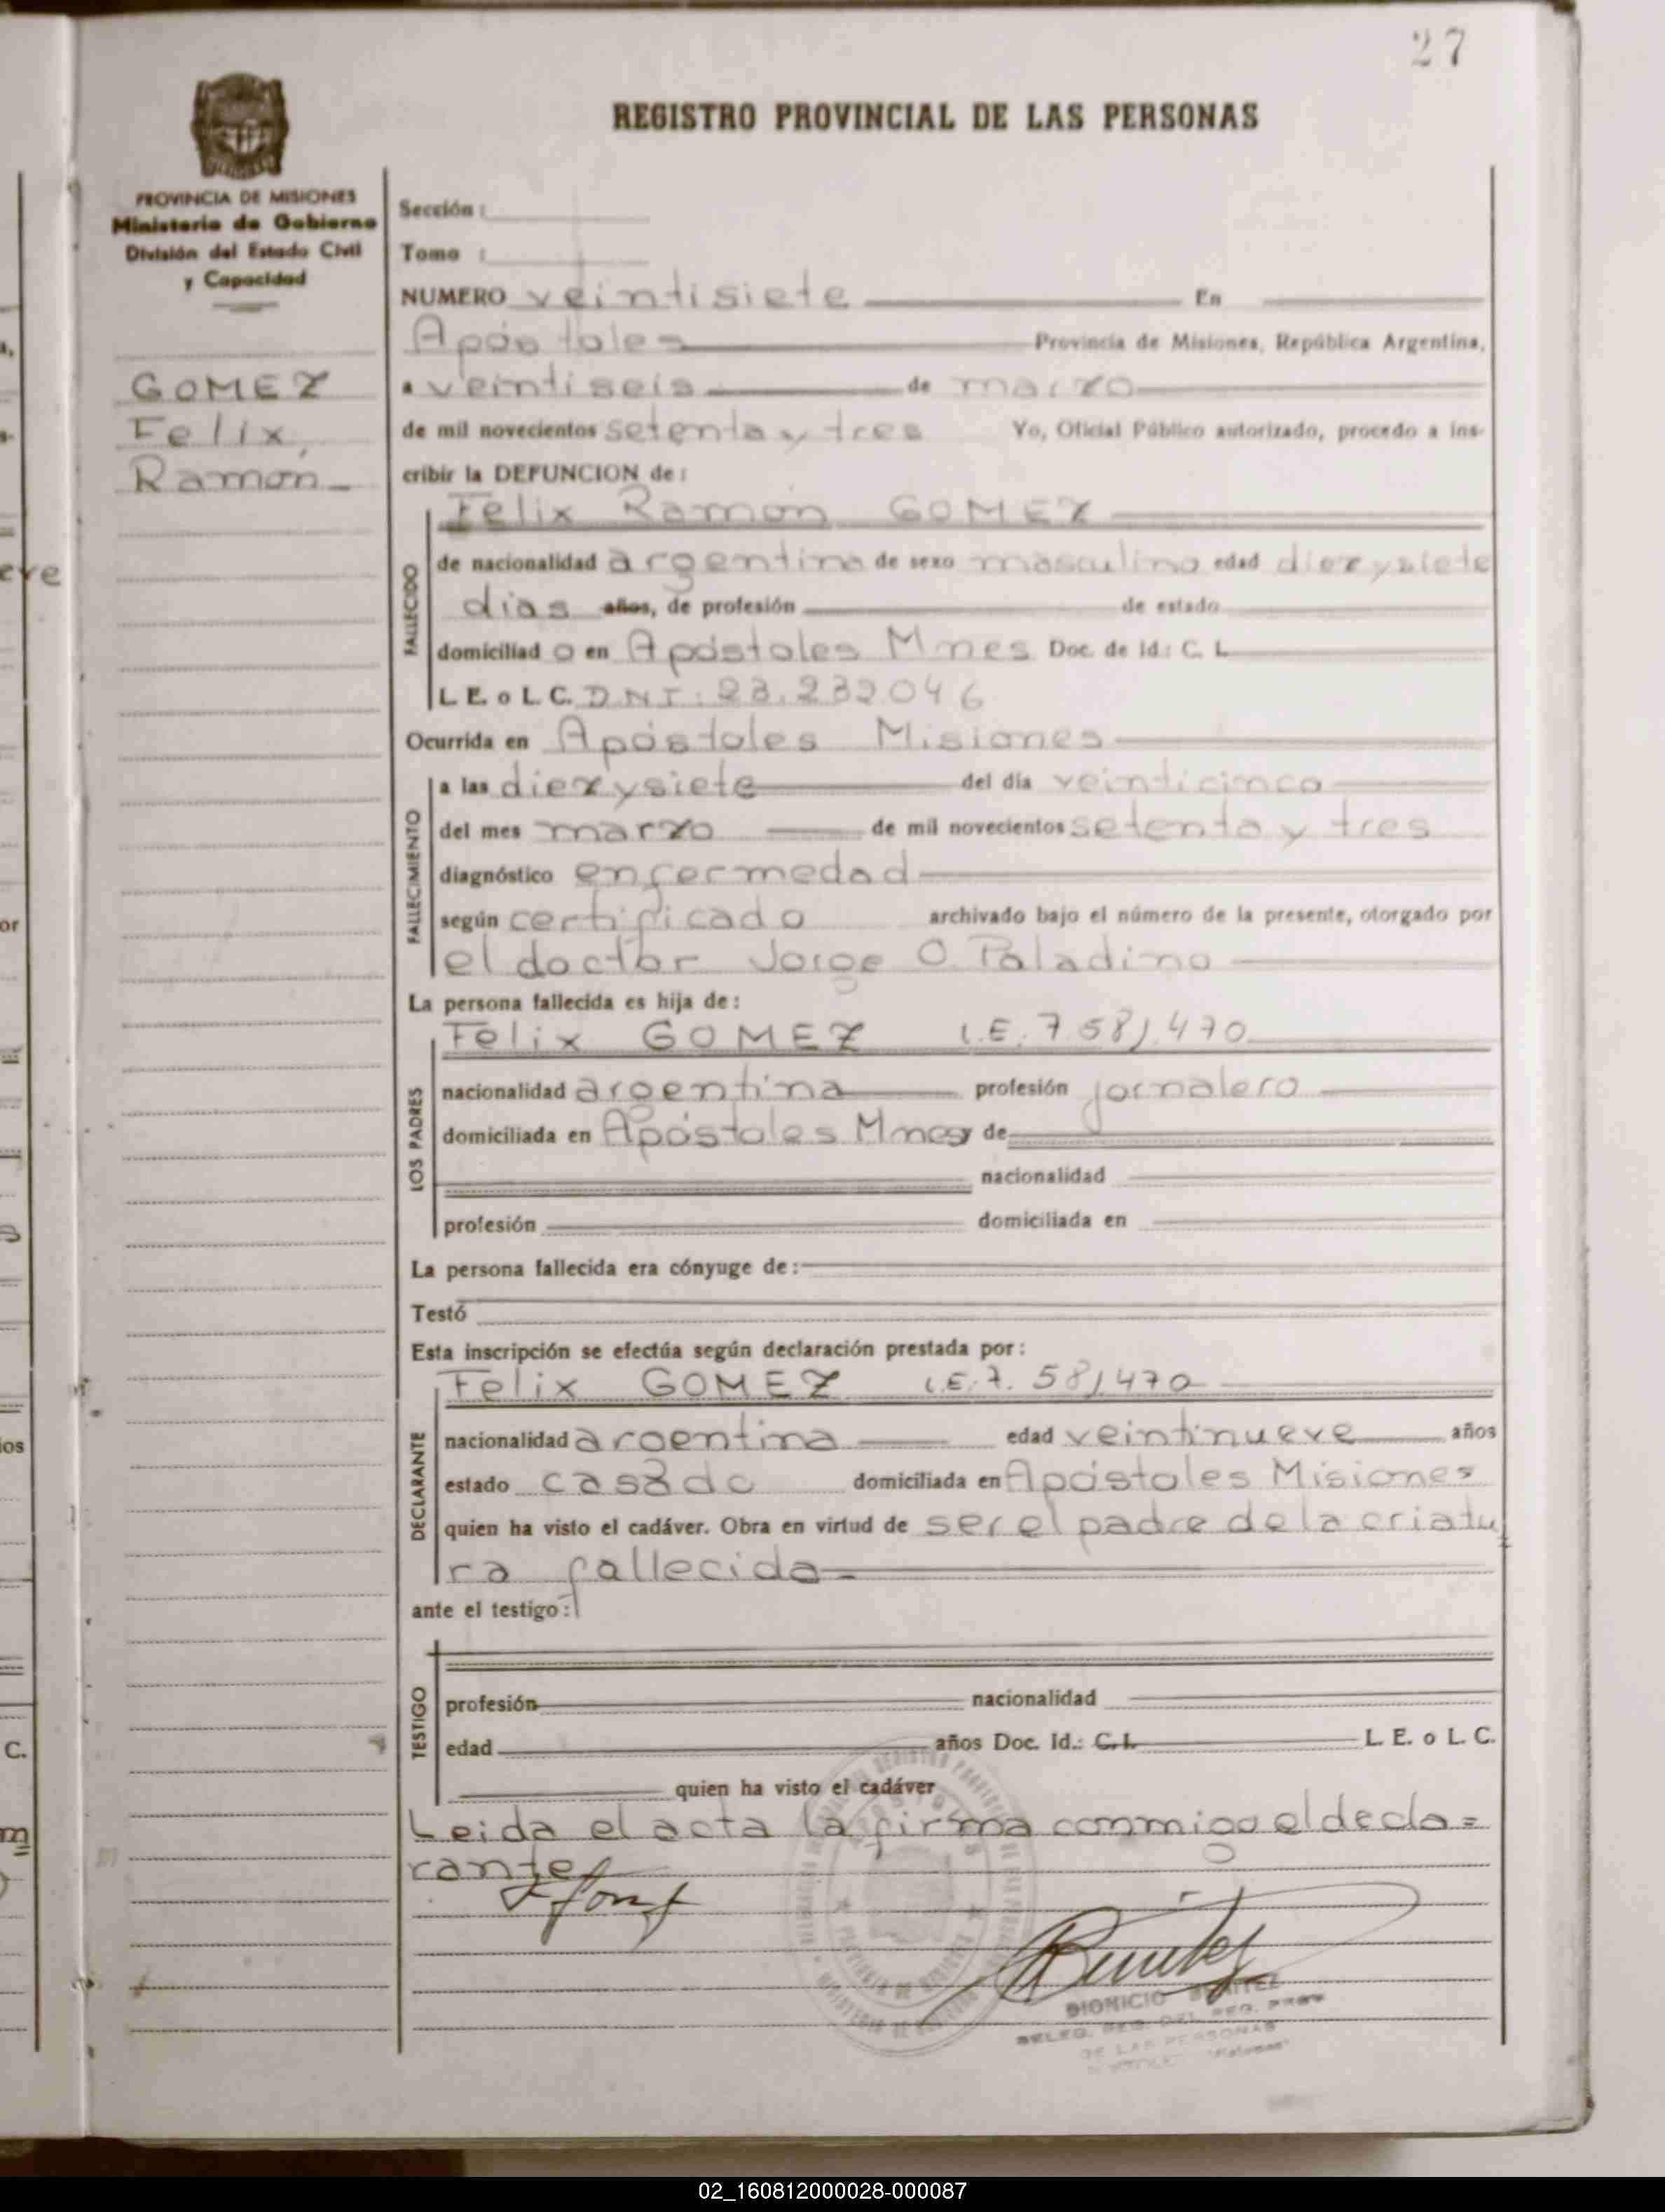 27
REGISTRO PROVINCIAL DE LAS PERSONAS
PROVINCIA DE MISIONES
Ministerio de Gobierno
División del Estado Civil
y Capacidad
GOMEZ
Felix,
Ramon
Sección :
Tomo :
NUMERO veintisiete En
Apóstoles Provincia de Misiones, República Argentina,
a veintiseis de marzo
de mil novecientos setenta y tres Yo, Oficial Público autorizado, procedo a ins-
cribir la DEFUNCION de :
Felix Ramón GOMEZ
FALLECIDO
de nacionalidad argentina de sexo masculino edad diezysiete
dias años, de profesión de estado
domiciliad o en Apóstoles Mnes Doc. de Id.: C. I.
L E. o L. C. DNI: 23.232046
Ocurrida en Apóstoles Misiones
FALLECIMIENTO
a las diezysiete del día veinticinco
del mes marzo de mil novecientos setenta y tres
diagnóstico enfermedad
según certificado archivado bajo el número de la presente, otorgado por
el doctor Jorge O. Paladino
La persona fallecida es hija de :
LOS PADRES
Felix GOMEZ L.E. 7.581.470
nacionalidad argentina profesión jornalero
domiciliada en Apóstoles Mnes y de
nacionalidad
profesión domiciliada en
La persona fallecida era cónyuge de :
Testó
Esta inscripción se efectúa según declaración prestada por :
DECLARANTE
Felix GOMEZ L.E. 7.581.470
nacionalidad argentina edad veintinueve años
estado casado domiciliada en Apóstoles Misiones
quien ha visto el cadáver. Obra en virtud de ser el padre de la criatu
ra fallecida
ante el testigo :
TESTIGO
profesión nacionalidad
edad años Doc. Id.: C. I. L. E. o L. C.
quien ha visto el cadáver
Leida el acta la firma conmigo el decla=
rante
Benitez
DIONICIO BENITEZ
DE LAS PERSONAS
02_160812000028-000087